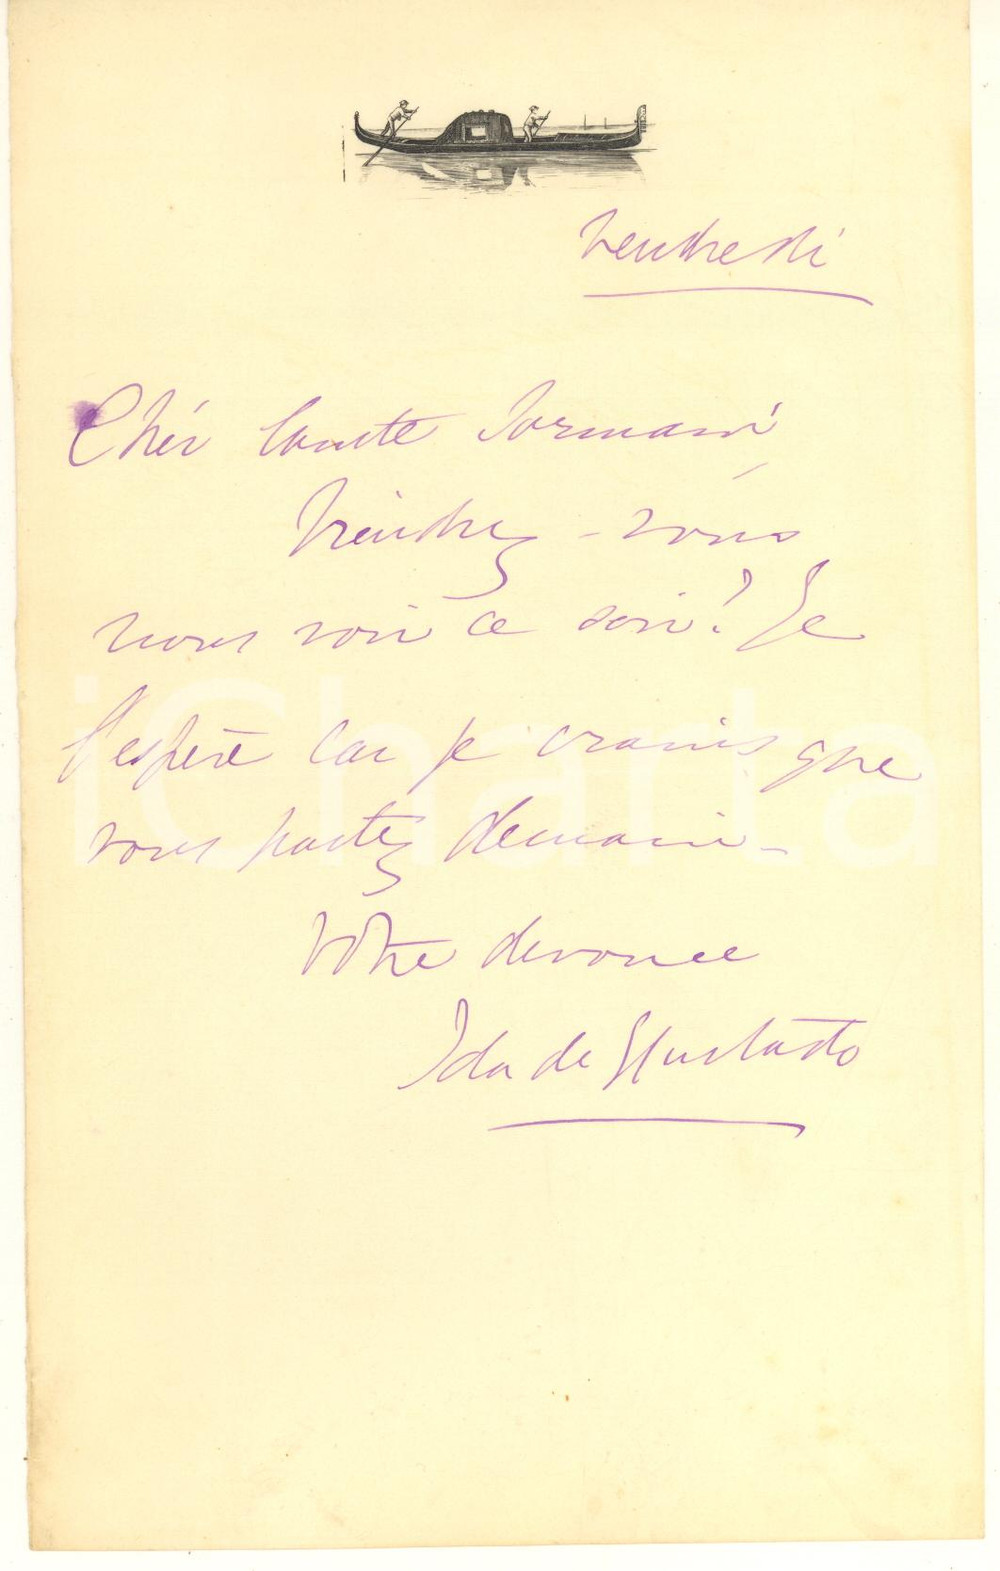 Vendredi
Chér Comte Sormani
Viendrez-vous
nous voir ce soir? Je
l'espère car je crains que
vous partez demain -
Votre devouee
Ida de
iCharta